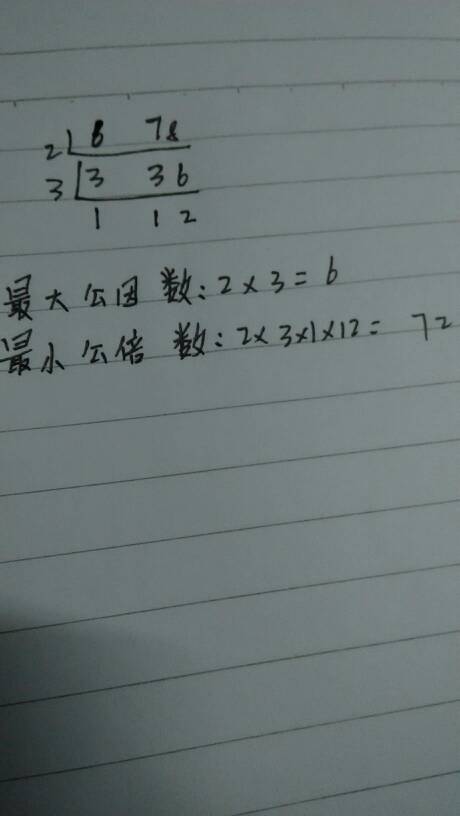 2 6 78
3 3 36
1 12
最大公因数:2×3=6
最小公倍数:2×3×1×12= 72